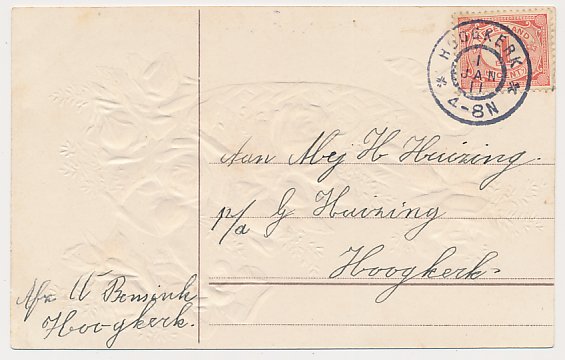 HOOGKERK
1
JAN
11
4-8N
CENT
Aan Mej H Huizing.
p/a G Huizing
Hoogkerk.
Afz A Bensink
Hoogkerk.